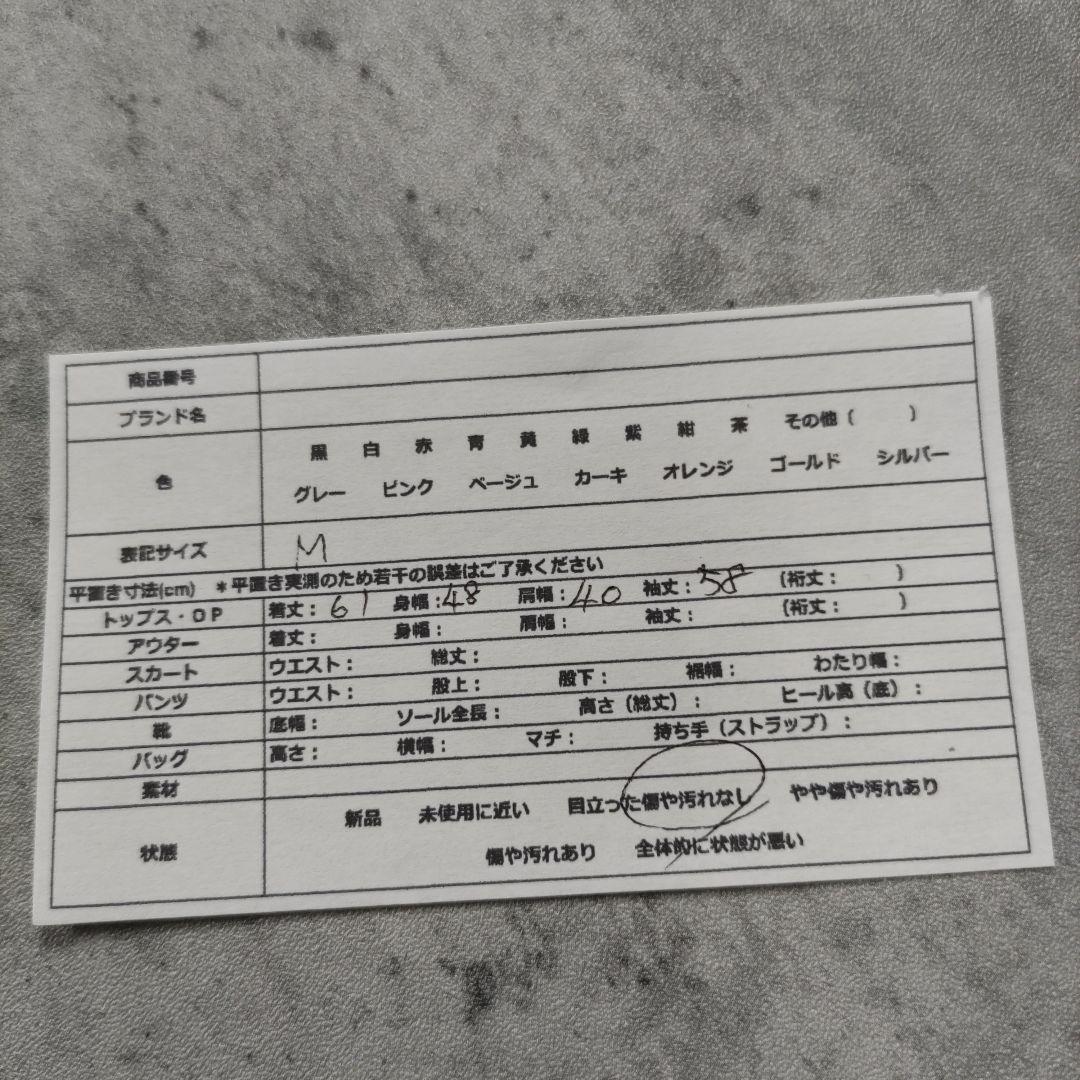 商品番号
ブランド名
色 黒 白 赤 青 黄 緑 紫 紺 茶 その他（ ）
グレー ピンク ベージュ カーキ オレンジ ゴールド シルバー
表記サイズ M
平置き寸法(cm) ＊平置き実測のため若干の誤差はご了承ください
トップス・OP 着丈：61 身幅：48 肩幅：40 袖丈：58 （裄丈： ）
アウター 着丈： 身幅： 肩幅： 袖丈： （裄丈： ）
スカート ウエスト： 総丈：
パンツ ウエスト： 股上： 股下： 裾幅： わたり幅：
靴 底幅： ソール全長： 高さ（総丈）： ヒール高（底）：
バッグ 高さ： 横幅： マチ： 持ち手（ストラップ）：
素材
状態 新品 未使用に近い 目立った傷や汚れなし やや傷や汚れあり
傷や汚れあり 全体的に状態が悪い